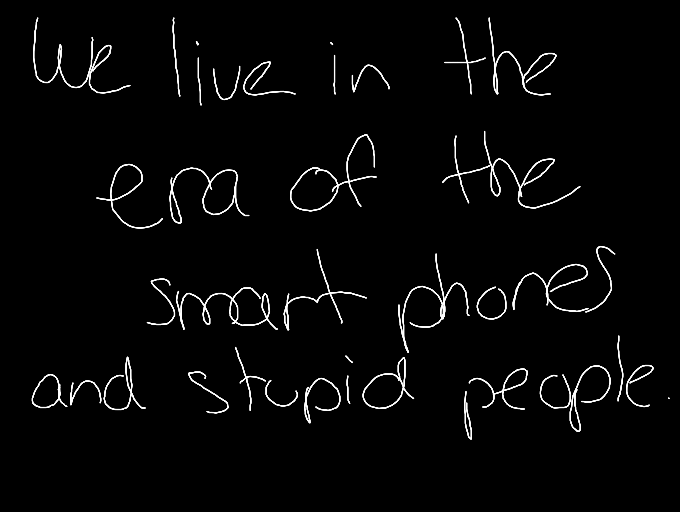 We live in the
era of the
smart phones
and stupid people.